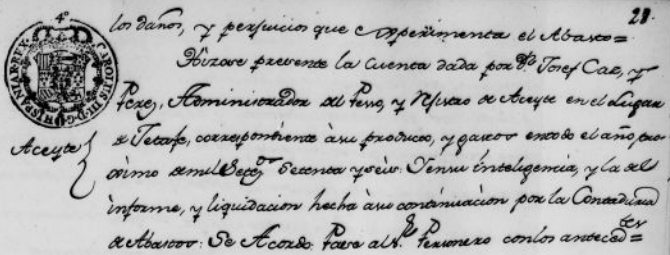 28.
4º
CAROLUS III D G HISPANIAR REX
los daños, y perjuicios que experimenta el Abasto=
Hizose presente la Cuenta dada por Dn Josef Cae, y
Perez, Administrador del Peso, y Rexistro de Aceyte en el Lugar
Aceyte
de Jetafe, correspondiente à su producto, y gastos en todo el año, pro
ximo de mil Setecos Setenta y seis: Y en su inteligencia, y la del
informe, y liquidacion hecha à su continuacion por la Contaduria
de Abastos: Se Acordò: Pase al Sr Personero con los antecedtes=